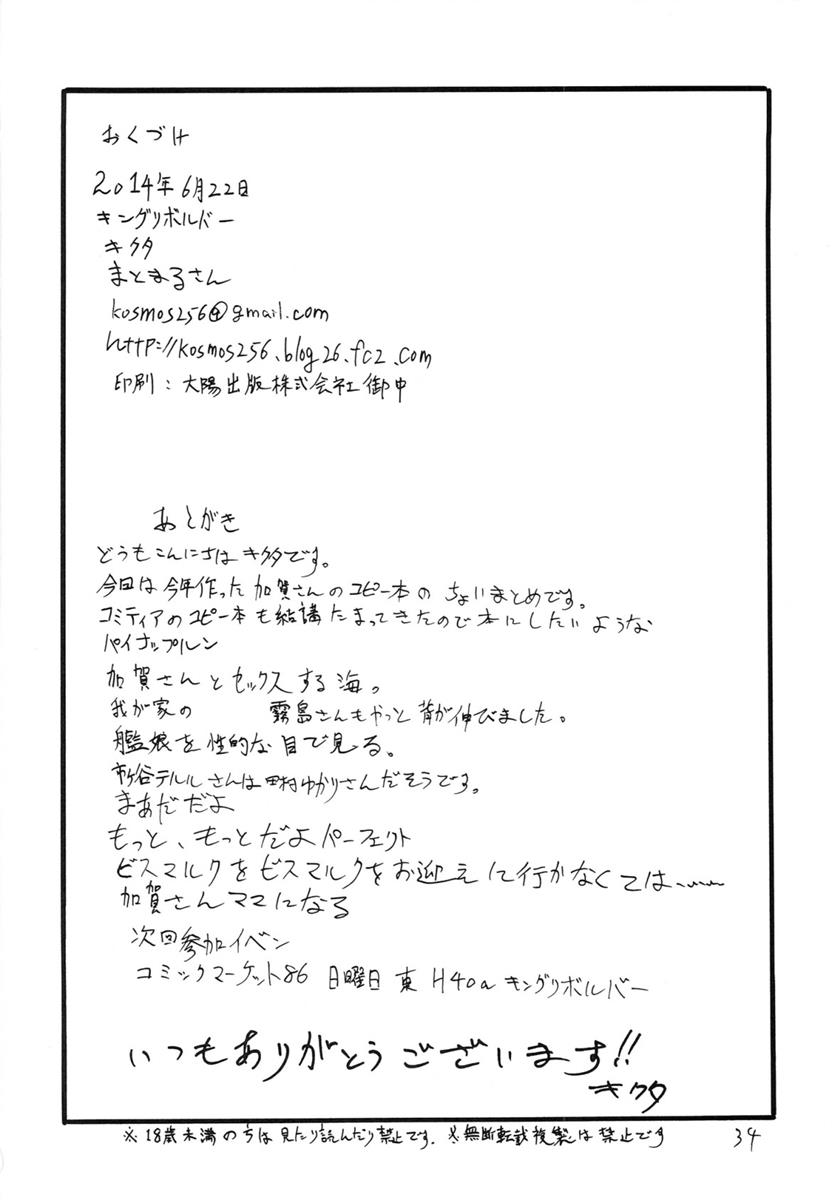 おくづけ
2014年6月22日
キングリボルバー
キクタ
まとまるさん
kosmos256@gmail.com
http://kosmos256.blog26.fc2.com
印刷：大陽出版株式会社御中
あとがき
どうもこんにちはキクタです。
今回は今年作った加賀さんのコピー本のちょいまとめです。
コミティアのコピー本も結講たまってきたので本にしたいような
パイナップルン
加賀さんとセックスする海。
我が家の 霧島さんもやっと背が伸びました。
艦娘を性的な目で見る。
市ヶ谷テルルさんは田村ゆかりさんだそうです。
まあだだよ
もっと、もっとだよパーフェクト
ビスマルクをビスマルクをお迎えに行かなくては……
加賀さんママになる
次回参加イベン
コミックマーケット86 日曜日 東 H40a キングリボルバー
いつもありがとうございます!!
キクタ
※18歳未満の方は見たり読んだり禁止です。※無断転載複製は禁止です
34